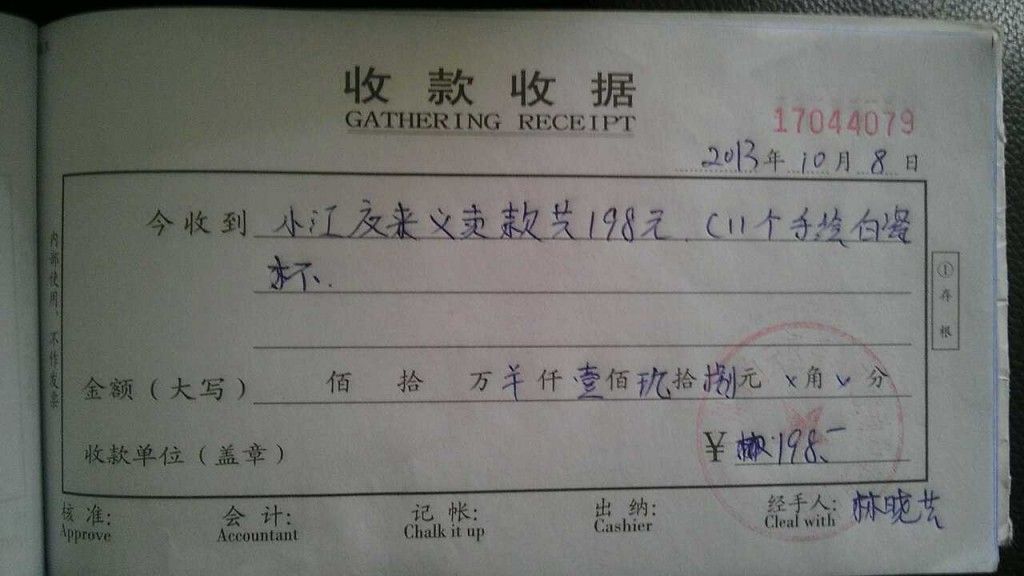 收款收据
GATHERING RECEIPT
17044079
2013年10月8日
今收到 小江夜来义卖款共198元.(11个手绘白瓷
杯.
①存根
内部使用,不作发票
金额(大写) 佰 拾 万 羊 仟 壹 佰 玖 拾 捌 元 x 角 x 分
收款单位(盖章) ¥ 198.-
核准: 会计: 记帐: 出纳: 经手人: 林晓芸
Approve Accountant Chalk it up Cashier Cleal with